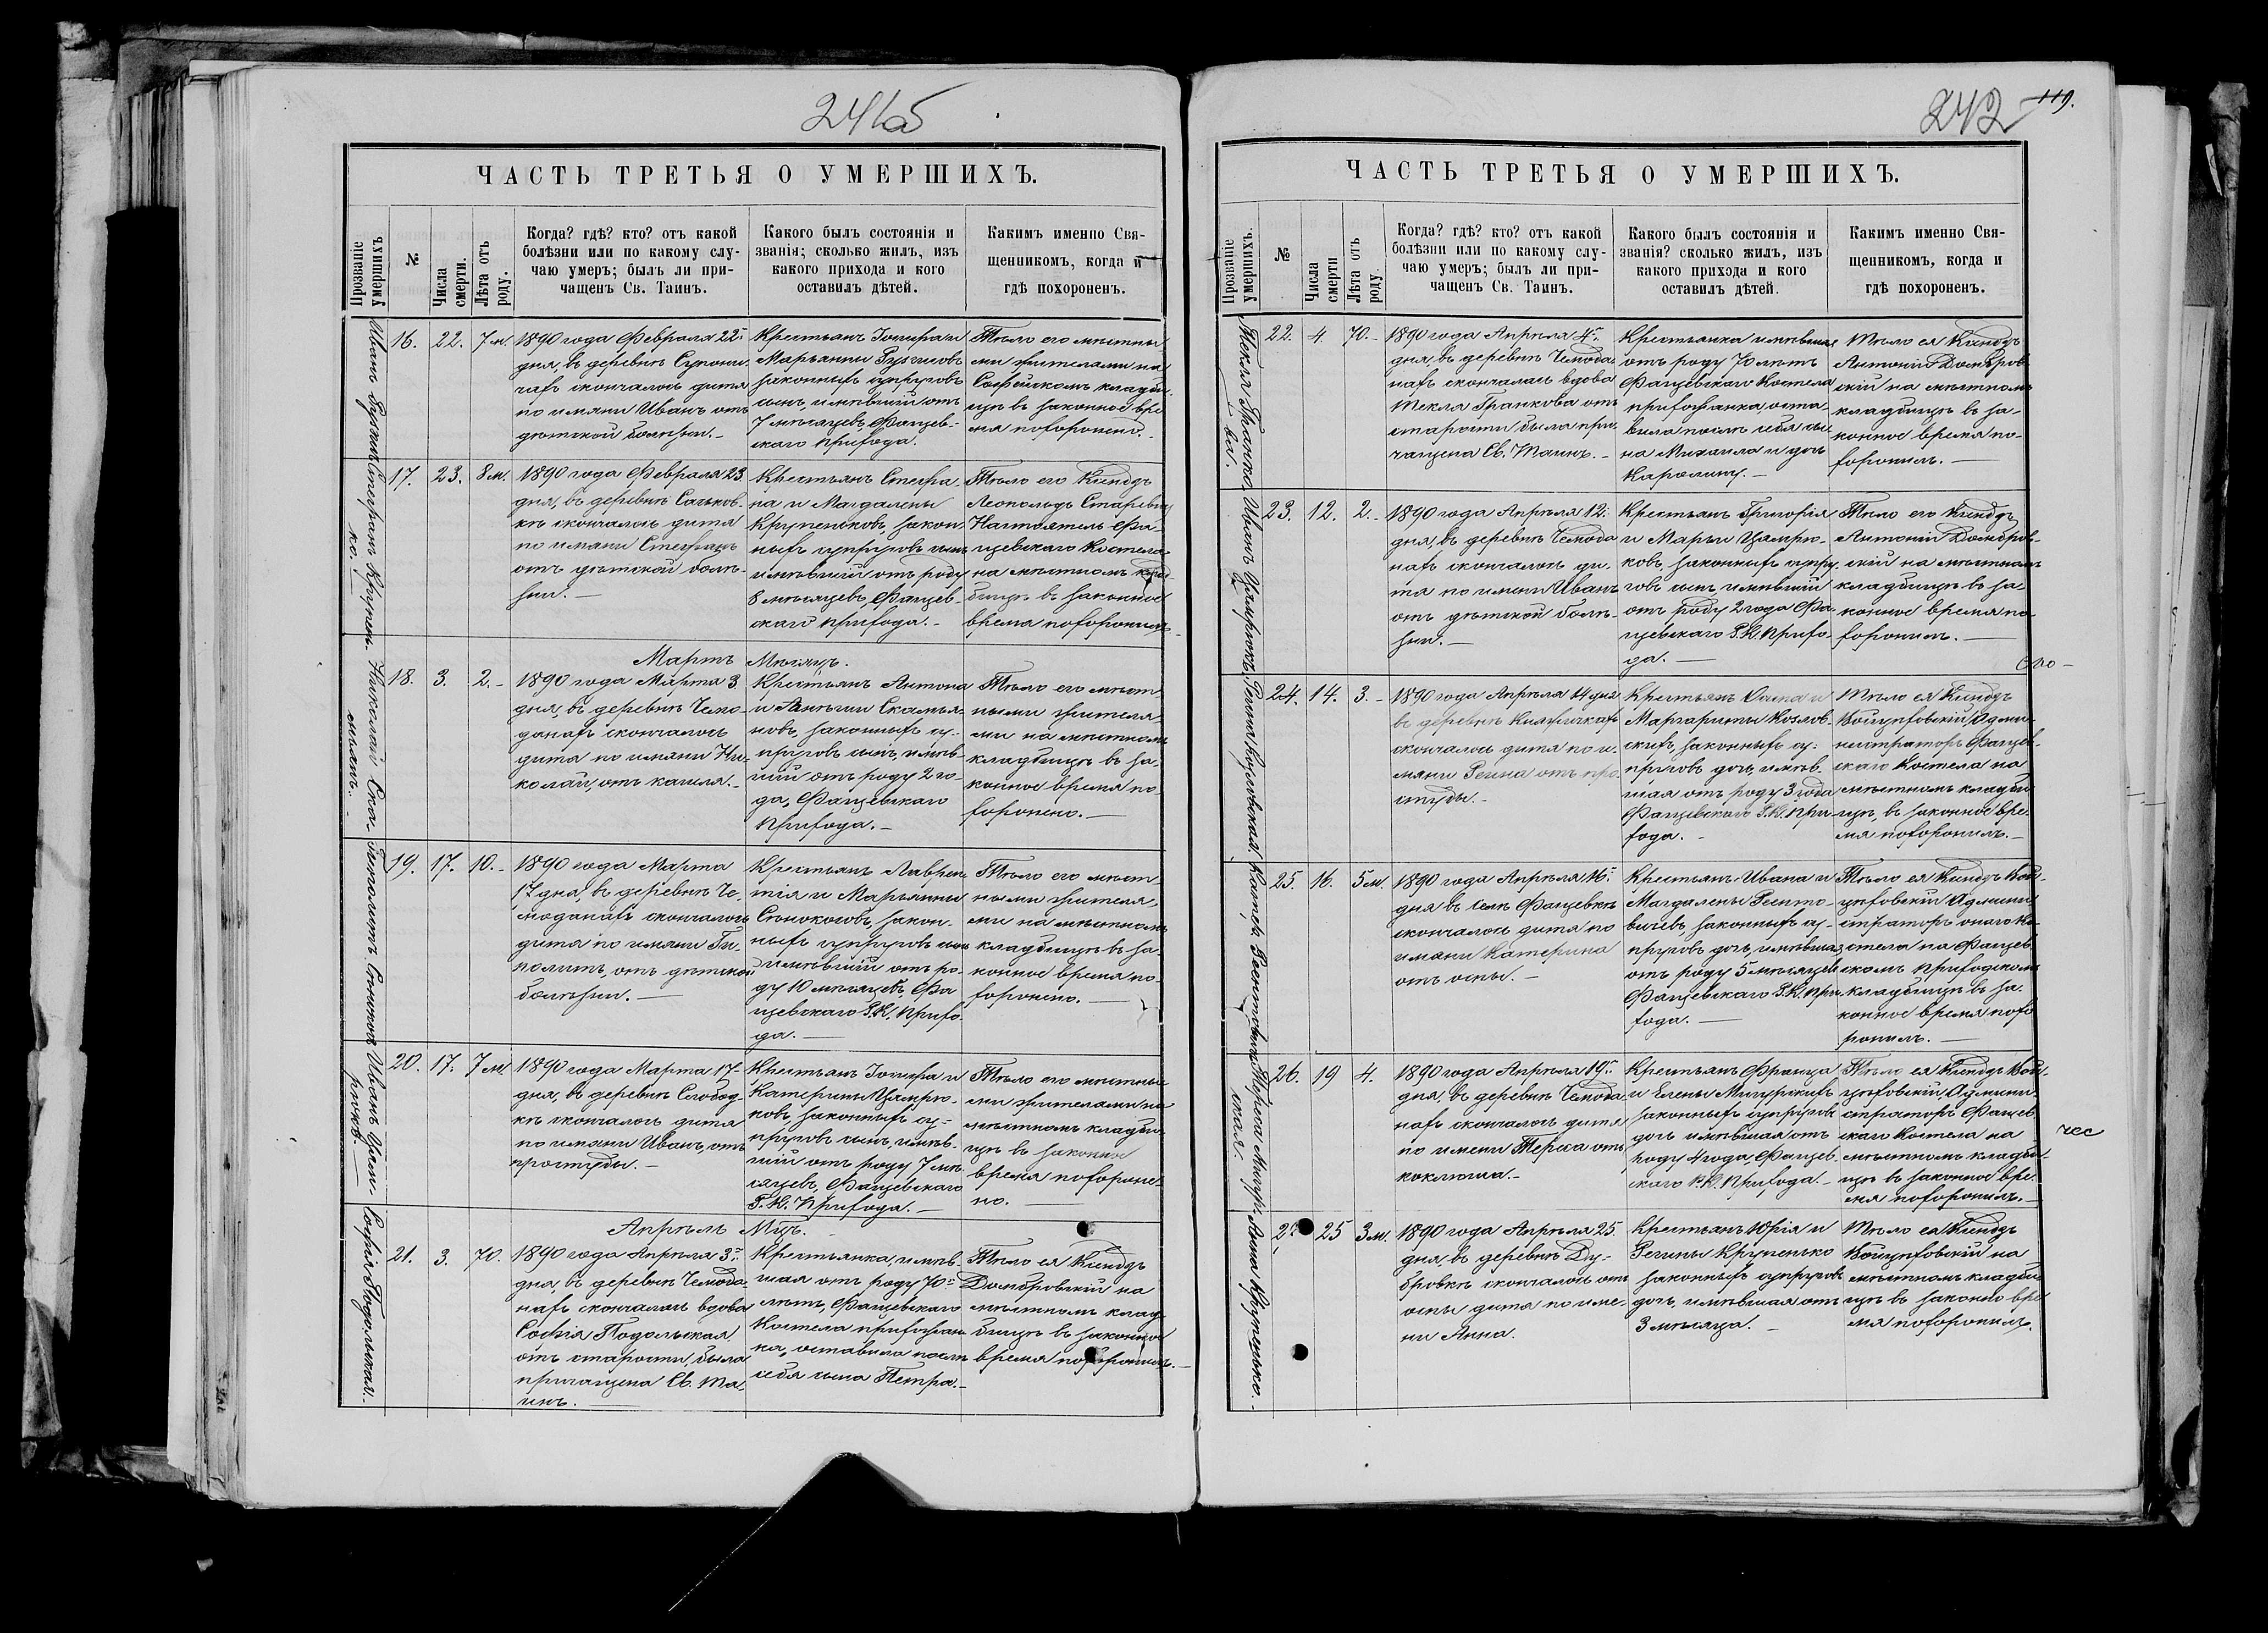 241об
ЧАСТЬ ТРЕТЬЯ О УМЕРШИХЪ.
Прозваніе умершихъ
№
Числа смерти.
Лѣта отъ роду.
Когда? гдѣ? кто? отъ какой
болѣзни или по какому слу-
чаю умеръ; былъ ли при-
чащенъ Св. Таинъ.
Какого былъ состоянія и
званія; сколько жилъ, изъ
какого прихода и кого
оставилъ дѣтей.
Какимъ именно Свя-
щенникомъ, когда и
гдѣ похороненъ.
Иванъ
16.
22.
7 м.
1890 года Февраля 22
дня, въ деревнѣ
чахъ скончалось дитя
по имяни Иванъ отъ
дѣтской болѣзни.-
Крестьянъ Іосифа и
Марьянны
законныхъ супруговъ
сынъ, имѣвшій отъ
7 мѣсяцевъ, Фащев-
скаго прихода.
Тѣло его мѣстны-
ми жителями на
Софейскомъ кладби-
щѣ въ законное вре
мя похоронено.-
Стефанъ Крупень-
ко.
17.
23.
8 м.
1890 года Февраля 23
дня, въ деревнѣ Саськов-
кѣ скончалось дитя
по имяни Стефанъ
отъ дѣтской болѣ-
зни.-
Крестьянъ Стефа-
на и Магдалены
Крупеньковъ закон-
ныхъ супруговъ сынъ
имѣвшій отъ роду
8 мѣсяцевъ, Фащев-
скаго прихода.-
Тѣло его Ксендзъ
Леопольдъ
Настоятель Фа-
щевскаго Костела
на мѣстномъ клад-
бищѣ въ законное
время похоронилъ
Мартъ Мѣсяцъ.
Николай Ска-
18.
3.
2.-
1890 года Марта 3
дня, въ деревнѣ Чемо-
данахъ скончалось
дитя по имяни Ни-
колай, отъ кашля.-
Крестьянъ Антона
и
новъ, законныхъ су-
пруговъ сынъ, имѣв-
шій отъ роду 2 го-
да, Фащевскаго
прихода.-
Тѣло его мѣст-
ными жителя-
ми на мѣстномъ
кладбищѣ въ за-
конное время по-
хоронено.-
Гиполитъ Сѣнокосъ
19.
17.
10.-
1890 года Марта
17 дня, въ деревнѣ Че-
моданахъ скончалось
дитя по имяни Ги-
политъ, отъ дѣтской
болѣзни.-
Крестьянъ Лаврен-
тія и Марьянны
Сѣнокосовъ, закон-
ныхъ супруговъ сынъ
имѣвшій отъ ро-
ду 10 мѣсяцевъ, Фа
щевскаго Р.К. прихо-
да.-
Тѣло его мѣст-
ными жителя-
ми на мѣстномъ
кладбищѣ въ за-
конное время по-
хоронено.-
Иванъ
20.
17.
7 м.
1890 года Марта 17
дня, въ деревнѣ Слобод-
кѣ скончалось дитя
по имяни Иванъ, отъ
простуды.-
Крестьянъ Іосифа и
Катерины Цымрю-
ковъ, законныхъ су-
пруговъ сынъ, имѣв-
шій отъ роду 7 мѣ-
сяцевъ, Фащевскаго
Р.К. прихода.-
Тѣло его мѣстны-
ми жителями на
мѣстномъ кладби-
щѣ въ законное
время похороне-
но.
Апрѣль Мцъ.
Софія Подольская.
21.
3.
70.
1890 года Апрѣля 3
дня, въ деревнѣ Чемода-
нахъ скончалась вдова
Софія Подольская
отъ старости, была
причащена Св. Та-
инъ.-
Крестьянка, имѣв-
шая отъ роду 70
лѣтъ, Фащевскаго
Костела прихожан-
ка, оставила послѣ
себя сына Петра.-
Тѣло ея Ксендзъ
Домбровскій на
мѣстномъ клад-
бищѣ въ законное
время похоронилъ.-
242
119.
ЧАСТЬ ТРЕТЬЯ О УМЕРШИХЪ.
Прозваніе умершихъ.
№
Числа смерти
Лѣта отъ роду.
Когда? гдѣ? кто? отъ какой
болѣзни или по какому слу-
чаю умеръ; былъ ли при-
чащенъ Св. Таинъ.
Какого былъ состоянія и
званія? сколько жилъ, изъ
какого прихода и кого
оставилъ дѣтей.
Какимъ именно Свя-
щенникомъ, когда и
гдѣ похороненъ.
Текля Гранко-
ва.
22.
4
70.-
1890 года Апрѣля 4
дня, въ деревнѣ Чемода-
нахъ скончалась вдова
Текла Гранкова отъ
старости, была при-
чащена Св. Таинъ.-
Крестьянка имѣвшая
отъ роду 70 лѣтъ
Фащевскаго Костела
прихожанка, оста-
вила послѣ себя сы-
на Михаила и дочь
Каролину.-
Тѣло ея Ксендзъ
Антоній Домбров-
скій на мѣстномъ
кладбищѣ въ за-
конное время по-
хоронилъ.-
Иванъ Цымрюкъ
23.
12.
2.-
1890 года Апрѣля 12
дня, въ деревнѣ Чемода
нахъ скончалось ди-
тя по имени Иванъ
отъ дѣтской болѣ-
зни.-
Крестьянъ Григорія
и Марьи Цымрю-
ковъ, законныхъ супру-
говъ сынъ, имѣвшій
отъ роду 2 года Фа-
щевскаго Р.К. прихо-
да.-
Тѣло его Ксендзъ
Антоній Домбров-
скій на мѣстномъ
кладбищѣ въ за-
конное время по
хоронилъ.-
Регина Козловская.
24.
14.
3.-
1890 года Апрѣля 14 дня
въ деревнѣ
скончалось дитя по и-
мяни Регина отъ про-
студы.-
Крестьянъ и
Маргариты Козлов-
скихъ, законныхъ су-
пруговъ дочь, имѣв-
шая отъ роду 3 года
Фащевскаго Р.К. при-
хода.-
Тѣло ея Ксендзъ
Войцѣховскій Адми-
нистраторъ Фащев-
скаго Костела на
мѣстномъ кладби-
щѣ, въ законное вре-
мя похоронилъ.-
25.
16.
5 м.
1890 года Апрѣля 16
дня въ селѣ Фащевкѣ
скончалось дитя по
имяни Катерина
отъ оспы.-
Крестьянъ Ивана и
Магдалены
вичевъ законныхъ су-
пруговъ дочь, имѣвшая
отъ роду 5 мѣсяцевъ
Фащевскаго Р.К. при-
хода.-
Тѣло ея Ксендзъ Вой-
цѣховскій Админи-
страторъ онаго Ко-
стела на Фащев-
скомъ приходскомъ
кладбищѣ въ за-
конное время похо
ронилъ.-
26.
19
4.
1890 года Апрѣля 19
дня, въ деревнѣ Чемода-
нахъ скончалось дитя
по имени Тереса отъ
коклюша.-
Крестьянъ Франца
и Елены Мигурскихъ
законныхъ супруговъ
дочь имѣвшая отъ
роду 4 года, Фащев-
скаго Р.К. прихода.-
Тѣло ея Ксендзъ Вой-
цѣховскій, Админи-
страторъ Фащев-
скаго Костела на
мѣстномъ кладби-
щѣ въ законное вре-
мя похоронилъ.-
Анна Крупенько.-
25
3 м.
1890 года Апрѣля 25
дня, въ деревнѣ Ду-
бровкѣ скончалось отъ
оспы дитя по име-
ни Анна.
Крестьянъ Юрія и
Регины Крупенько
законныхъ супруговъ
дочь, имѣвшая отъ
3 мѣсяца.-
Тѣло ея Ксендзъ
Войцѣховскій на
мѣстномъ кладби
щѣ въ законно вре
мя похоронилъ.